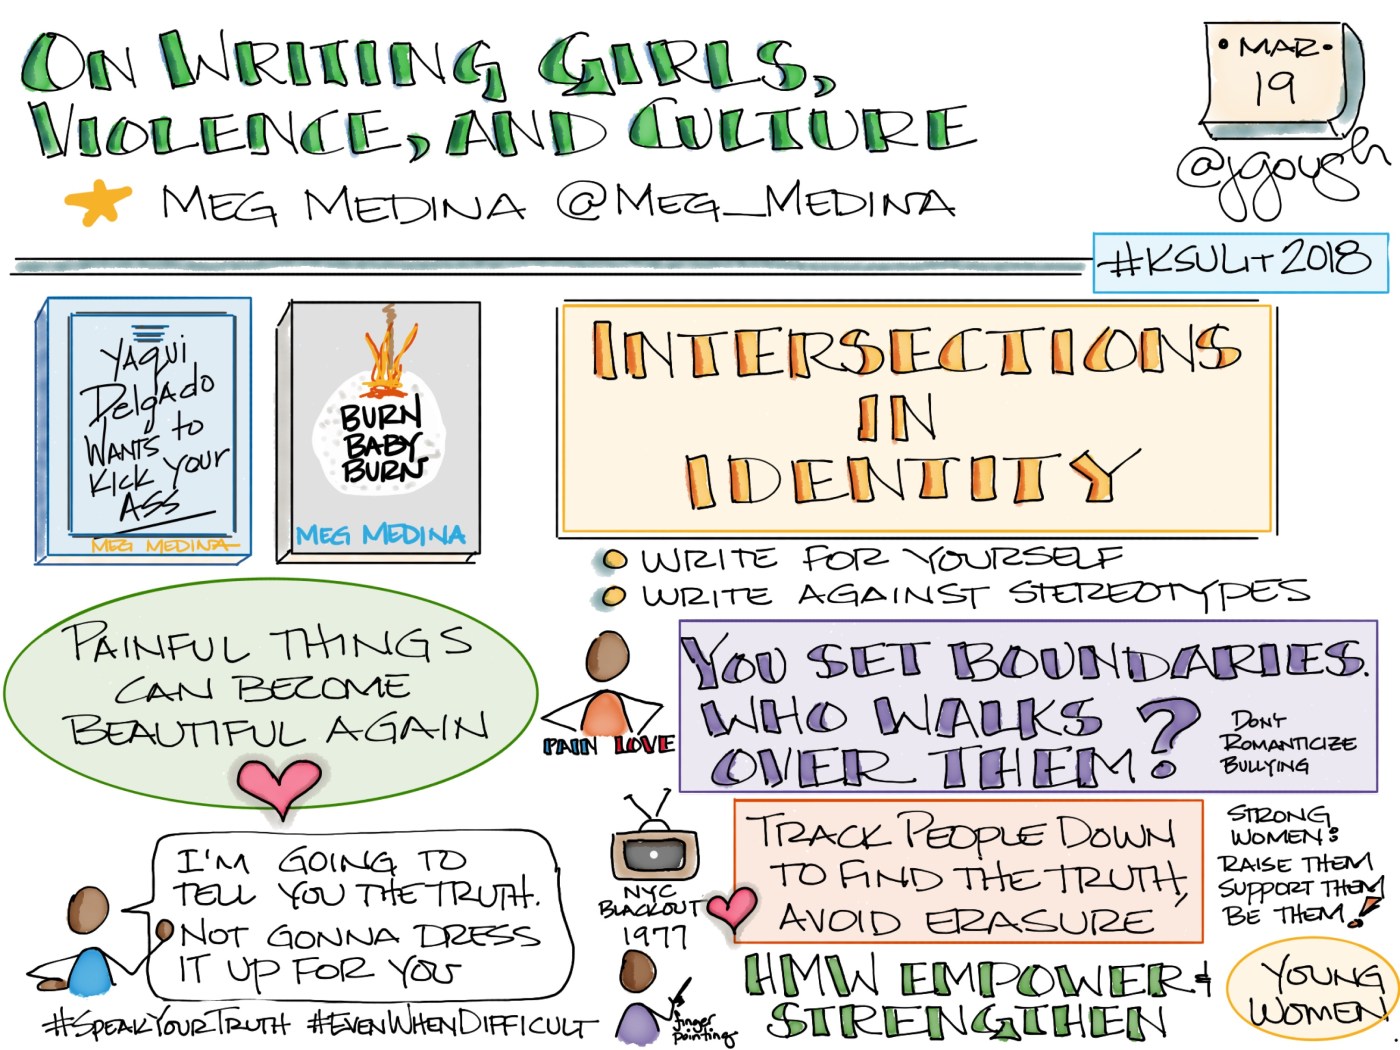 On Writing Girls,
Violence, and Culture
Meg Medina @Meg_Medina
Mar
19
@jgough
#KSULit2018
Yaqui
Delgado
Wants to
Kick Your
Ass
Meg Medina
Burn
Baby
Burn
Meg Medina
Intersections
in
Identity
Write for yourself
Write against stereotypes
Painful things
can become
beautiful again
Pain Love
You set boundaries.
Who walks
over them?
Don't
romanticize
bullying
I'm going to
tell you the truth.
Not gonna dress
it up for you
#SpeakYourTruth #EvenWhenDifficult
NYC
Blackout
1977
Track people down
to find the truth,
avoid erasure
Strong
women:
Raise them
Support them
Be them!
finger
pointing
HMW empower &
strengthen
Young
women.